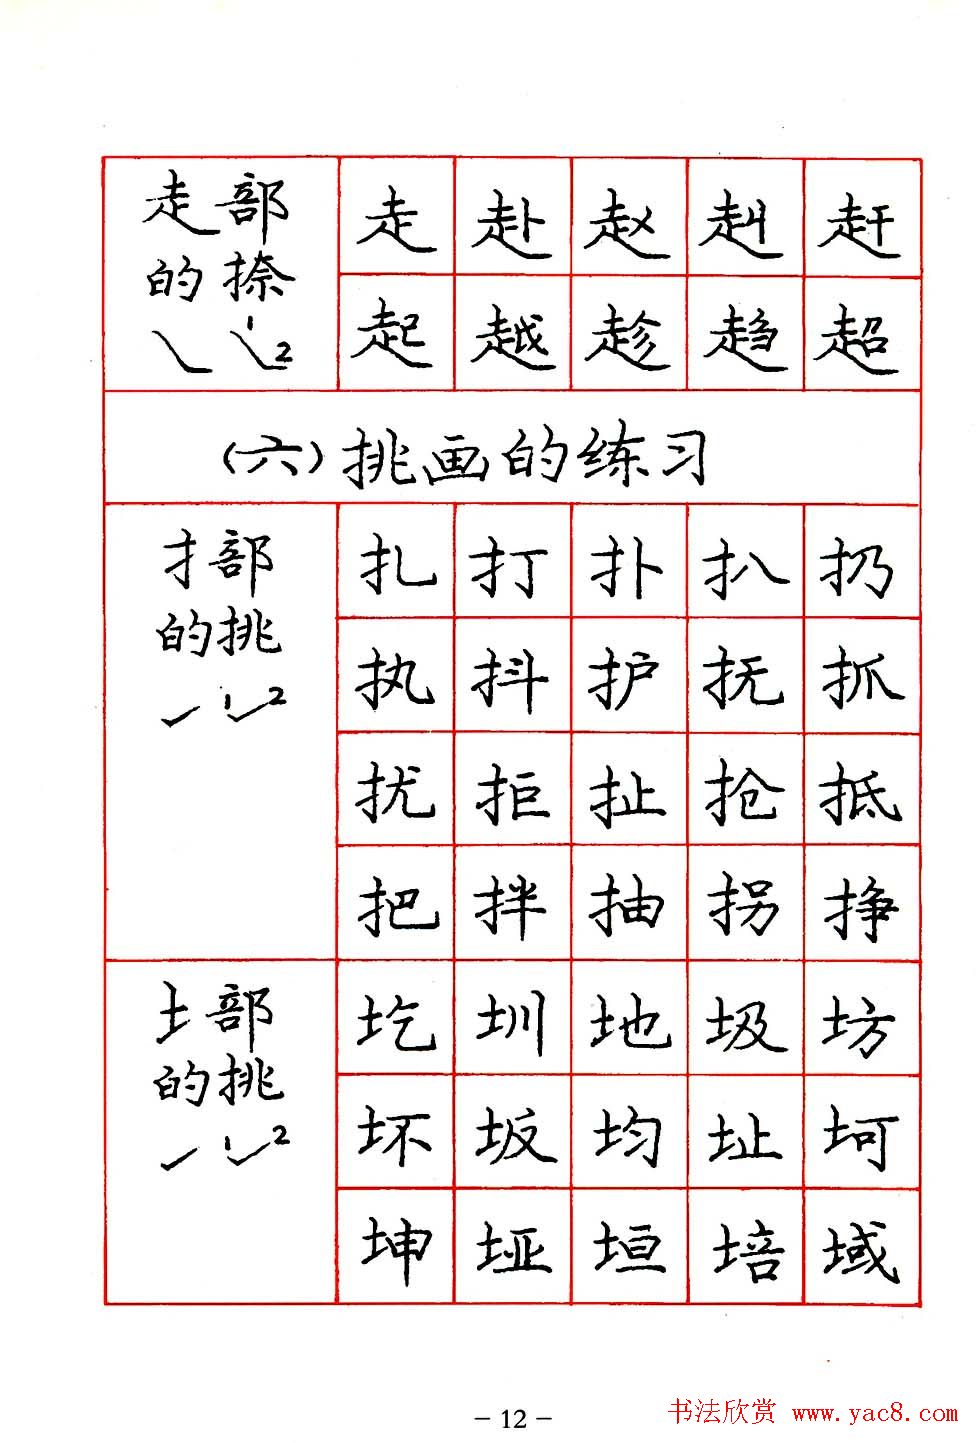 走部
的捺
1 2
走 赴 赵 赳 赶
起 越 趁 趋 超
(六)挑画的练习
扌部
的挑
1 2
扎 打 扑 扒 扔
执 抖 护 抚 抓
扰 拒 扯 抢 抵
把 拌 抽 拐 挣
土部
的挑
1 2
圪 圳 地 圾 坊
坏 坂 均 址 坷
坤 垭 垣 培 域
- 12 -
书法欣赏 www.yac8.com